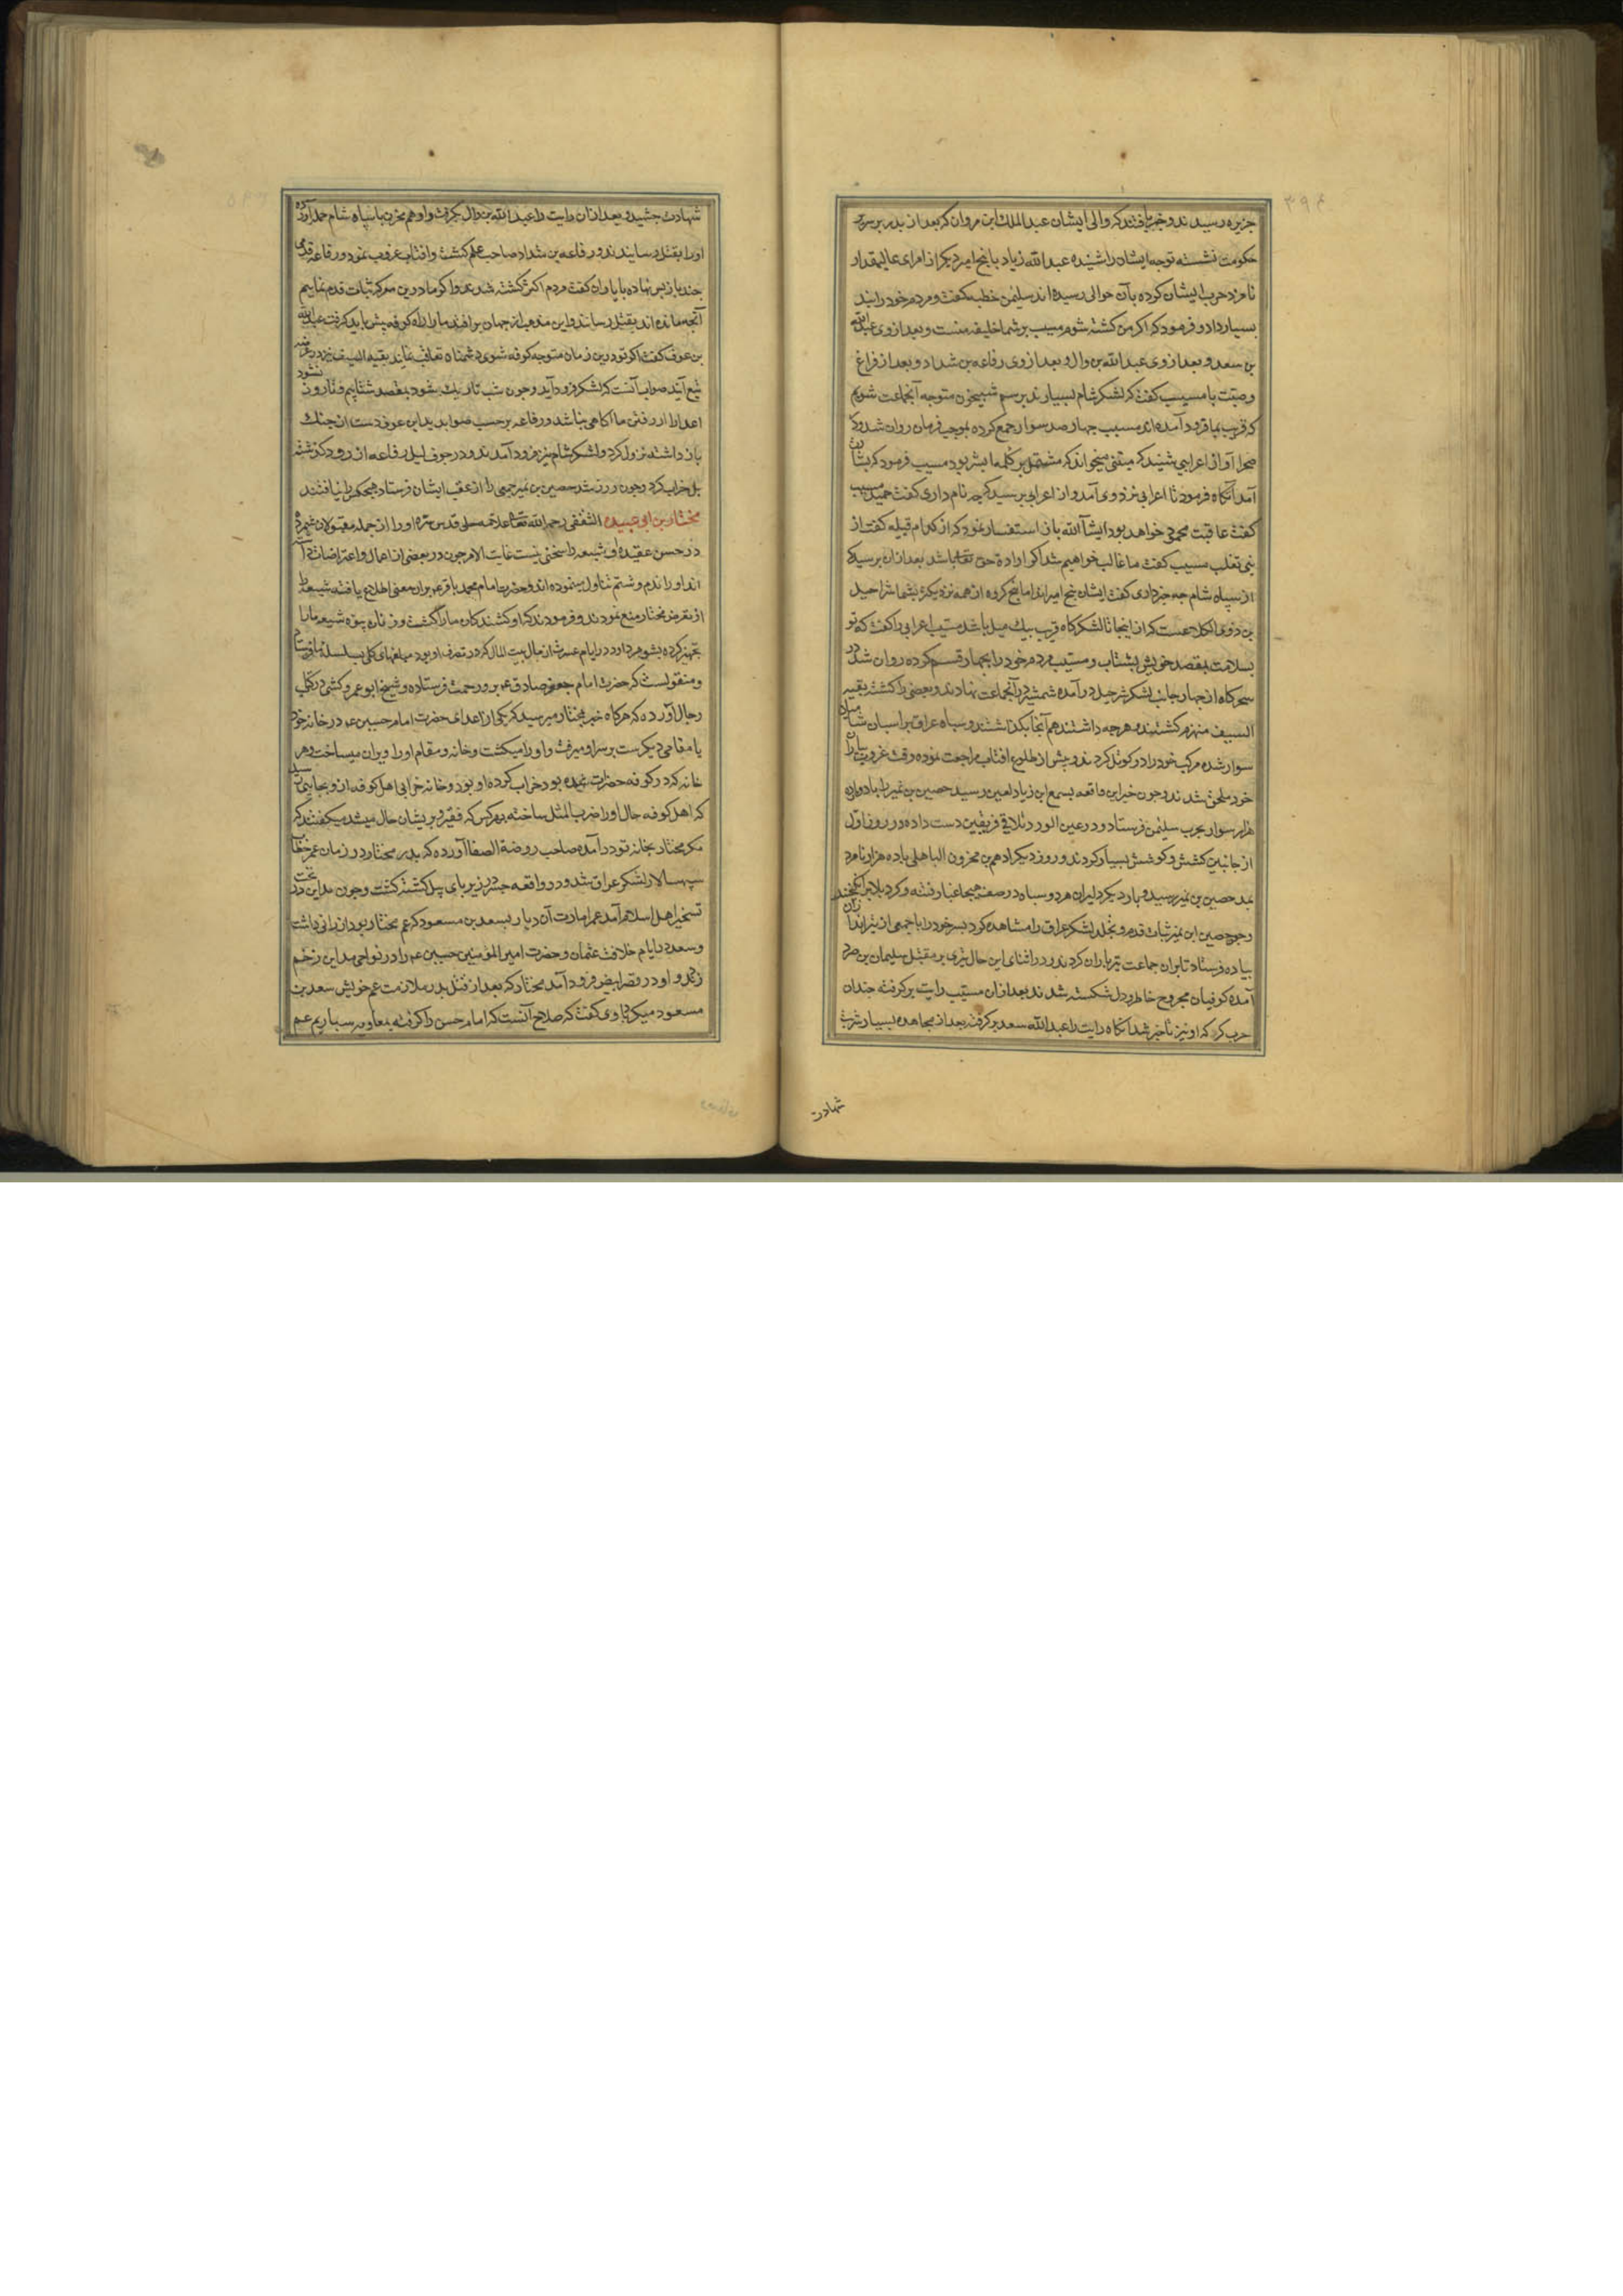 جزیره رسیدند و خبر یافتند که والی ایشان عبدالملک ابن مروان که بعد از پدر بر سریر
حکومت نشسته توجه ایشان را شنیده عبدالله زیاد با پنج امیر دیکر از امرای عالیمقدار
نامزد حرب ایشان کرده بآن حوالی رسیده اند سلیمن خطبه کفت و مردم خود را پند
بسیار داد و فرمود که اکر من کشته شوم مسیب بر شما خلیفه منست و بعد از وی عبدالله
بن سعد و بعد از وی عبدالله بن وال و بعد از وی رفاعه بن شداد و بعد از فراغ
وصیت با مسیب کفت که لشکر شام بسیارند برسم شبیخون متوجه آنجماعت شویم
که قریب بما فرود آمده اند مسیب چهار صد سوار جمع کرده بموجب فرمان روان شد و در
صحرا آواز اعرابی شنید که بیتی میخواند که مشتمل بر کلمه ابشر بود مسیب فرمود که بشارت
آمد آنکاه فرمود تا اعرابی نزد وی آمد و از اعرابی پرسید که چه نام داری کفت حمید مسیب
کفت عاقبت محمود خواهد بود ایشآ الله باز استفسار نمود که از کدام قبیله کفت از
بنی تغلب مسیب کفت ما غالب خواهیم شد اکر اراده حق تعالی باشد بعد از ان پرسید که
از سپاه شام چه خبر داری کفت ایشان پنج امیراند اما پنج کروه از همه نزدیکتر بشما شراحیل
بن ذوی الکلاعست که از اینجا تا لشکرکاه قریب بیک میل باشد مسیب اعرابی را کفت که تو
بسلامت بمقصد خویش بشتاب و مسیب مردم خود را بچهار قسم کرده روان شد و در
سحرکاه از چهار جانب لشکر شرحیل درآمده شمشیر در آنجماعت نهادند و بعضی را کشتند بقیه
السیف منهزم کشتند و هر چه داشتند هم آنجا بکذاشتند و سپاه عراق بر اسبان شامیان
سوار شده مرکب خود را دو کوتل کردند و پیش از طلوع افتاب مراجعت نموده وقت غروب بیاران
خود ملحق شدند و چون خبر این واقعه بسمع ابن زیاد لعین رسید حصین بن نمیر را با دوازده
هزار سوار بحرب سلیمن فرستاد و در عین الورد تلاقی فریقین دست داده در روز اول
از جانبین کشش و کوشش بسیار کردند و روز دیکر ادهم بن محزون الباهلی با ده هزار نامرد
بمدد حصین بن نمیر رسید و بار دیکر دلیران هر دو سپاه در صف هیجا غبار فتنه و کرد بلا برانکیختند
و چون حصین ابن نمیر ثبات قدم و تجلد لشکر عراق را مشاهده کرد پسر خود را با جمعی از تیر اندازان
پیاده فرستاد تا بران جماعت تیر باران کردند و در اثنای این حال تیری بر مقتل سلیمان بن صرد
آمده کوفیان مجروح خاطر و دل شکسته شدند بعد از ان مسیب رایت بر کرفته چندان
حرب کرد که او نیز ناچیز شد انکاه رایت را عبدالله سعد بر کرفته بعد از مجاهده بسیار شربت
شهادت
شهادت چشید و بعد از ان رایت را عبدالله بن وال بکرفت و او هم محزن با سپاه شام حمله آورده
او را بقتل رسانیدند و رفاعه بن شداد صاحب علم کشت و افتاب غروب نمود و رفاعه قدمی
چند باز پس نهاده با یاران کفت مردم اکثر کشته شدند و اکر ما درین معرکه ثبات قدم نماییم
آنچه مانده اند بقتل رسانند و این مذهب از جهان بر افتد ما را راه کوفه پیش باید کرفت عبدالله
بن عوف کفت اکر تو درین زمان متوجه کوفه شوی دشمنان تعاقب نمایند بقیه السیف نیز در عرضه
تیغ آیند صواب آنست که لشکر فرود آید و چون شب تاریک بشود بمقصد شتابیم و تا روز نشود
اعدا را از رفتن ما آکاهی نباشد و رفاعه بر حسب صوابدید ابن عوف دست از جنک
باز داشته نزول کرد و لشکر شام نیز فرود آمدند و در جوف لیل رفاعه از رود کذشته
پل خراب کرد و چون روز شد حصین بن نمیر جمعی را از عقب ایشان فرستاد هیچکس را نیافتند
مختار بن ابی عبیده الثقفی رحمه الله تعالی علامه حلی قدس سره او را از جمله مقبولان شمرده
در حسن عقیده او شیعه را سخنی نیست غایت الامر چون در بعضی از اعمال او اعتراضات داشته
اند او را ندم و شتم تناول مینموده اند و حضرت امام محمد باقر ع بر ان معنی اطلاع یافته شیعه را
از تعرض مختار منع نمودند و فرمودند که او کشندکان ما را کشت و زنان بیوه شیعه ما را
تجهیز کرده بشوهر داد و در ایام عسرت از مال بیت المال که در تصرف او بود مبلغهای کلی بسلسله ما فرستاد
و منقولست که حضرت امام جعفر صادق ع برو رحمت فرستاده و شیخ ابو عمرو کشی در کتاب
رجال آورده که هرکاه خبر بمختار میرسید که یکی از اعدای حضرت امام حسین ع در خانه خود
یا مقامی دیکرست بر سر او میرفت و او را میکشت و خانه و مقام او را ویران میساخت و هر
خانه که در کوفه حضرات بوده بود خراب کرده او بود و خانه خرابی اهل کوفه از و بجایی رسید
که اهل کوفه حال او را ضرب المثل ساخته بهرکس که فقیر و پریشان حال میشد میکفتند که
مکر مختار بخانه تو در آمده صاحب روضة الصفا آورده که پدر مختار در زمان عمر خطاب
سپهسالار لشکر عراق شد و در واقعه جسر در زیر پای پیل کشته کشت و چون مداین در تحت
تسخیر اهل اسلام آمد عمر امارت آن دیار بسعد بن مسعود که عم مختار بود ارزانی داشت
و سعد در ایام خلافت عثمان و حضرت امیر المؤمنین حسین ع را در نواحی مداین زخم
زدند و او در قصر ابیض فرود آمد مختار که بعد از قتل پدر ملازمت عم خویش سعد بن
مسعود میکرد با وی کفت که صلاح آنست که امام حسن را کرفته بمعاویه سپاریم عم